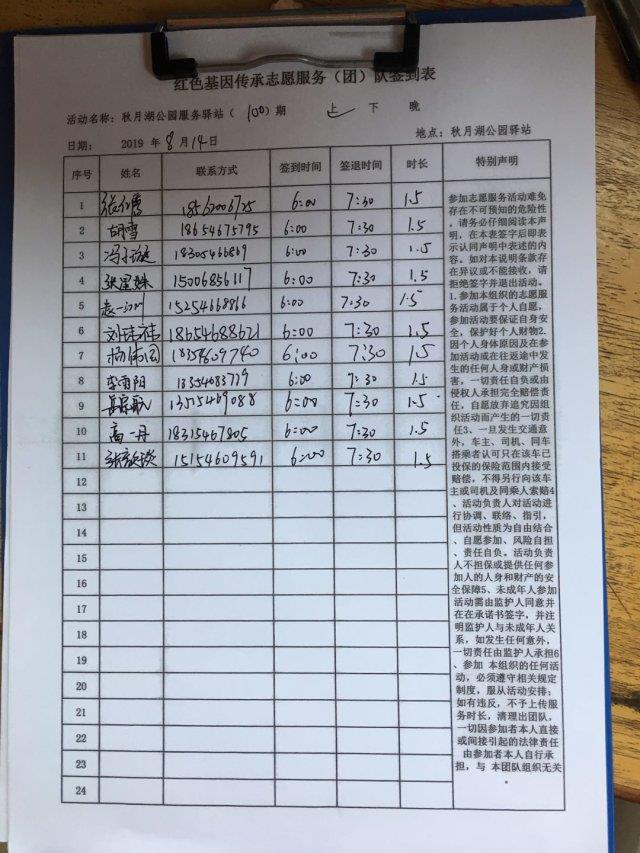 红色基因传承志愿服务（团）队签到表
活动名称：秋月湖公园服务驿站（100）期 上 下 晚
日期： 2019 年 8 月 14 日 地点：秋月湖公园驿站
序号 姓名 联系方式 签到时间 签退时间 时长 特别声明
1 6:00 7:30 1.5
2 胡雪 18654675795 6:00 7:30 1.5
3 18305466869 6:00 7:30 1.5
4 15006856117 6:00 7:30 1.5
5 15254668866 6:00 7:30 1.5
6 18654688621 6:00 7:30 1.5
7 6:00 7:30 1.5
8 李雨阳 13554683779 6:00 7:30 1.5
9 6:00 7:30 1.5
10 高一丹 18315467805 6:00 7:30 1.5
11 15154609591 6:00 7:30 1.5
12
13
14
15
16
17
18
19
20
21
22
23
24
参加志愿服务活动难免
存在不可预知的危险性
，请务必仔细阅读本声
明，在本表签字后即表
示认同声明中表述的内
容。如对本说明条款存
在异议或不能接收，请
拒绝签字并退出活动。
1.参加本组织的志愿服
务活动属于个人自愿，
参加活动要保证自身安
全，保护好个人财物2.
因个人身体原因及在参
加活动或在往返途中发
生的任何人身或财产损
害，一切责任自负或由
侵权人承担完全赔偿责
任，自愿放弃追究因组
织活动而产生的一切责
任3、一旦发生交通意
外，车主、司机、同车
搭乘者认可只在该车已
投保的保险范围内接受
赔偿，不得另行向该车
主或司机及同乘人索赔4
、活动负责人对活动进
行协调、联络、指引，
但活动性质为自由结合
、自愿参加、风险自担
、责任自负。活动负责
人不担保或提供任何参
加人的人身和财产的安
全保障5、未成年人参加
活动需由监护人同意并
在在承诺书签字，并注
明监护人与未成年人关
系，如发生任何意外，
一切责任由监护人承担6
、参加 本组织的任何活
动，必须遵守相关规定
制度，服从活动安排；
如有违反，不予上传服
务时长，清理出团队，
一切因参加者本人直接
或间接引起的法律责任
由参加者本人自行承
担，与 本团队组织无关
。